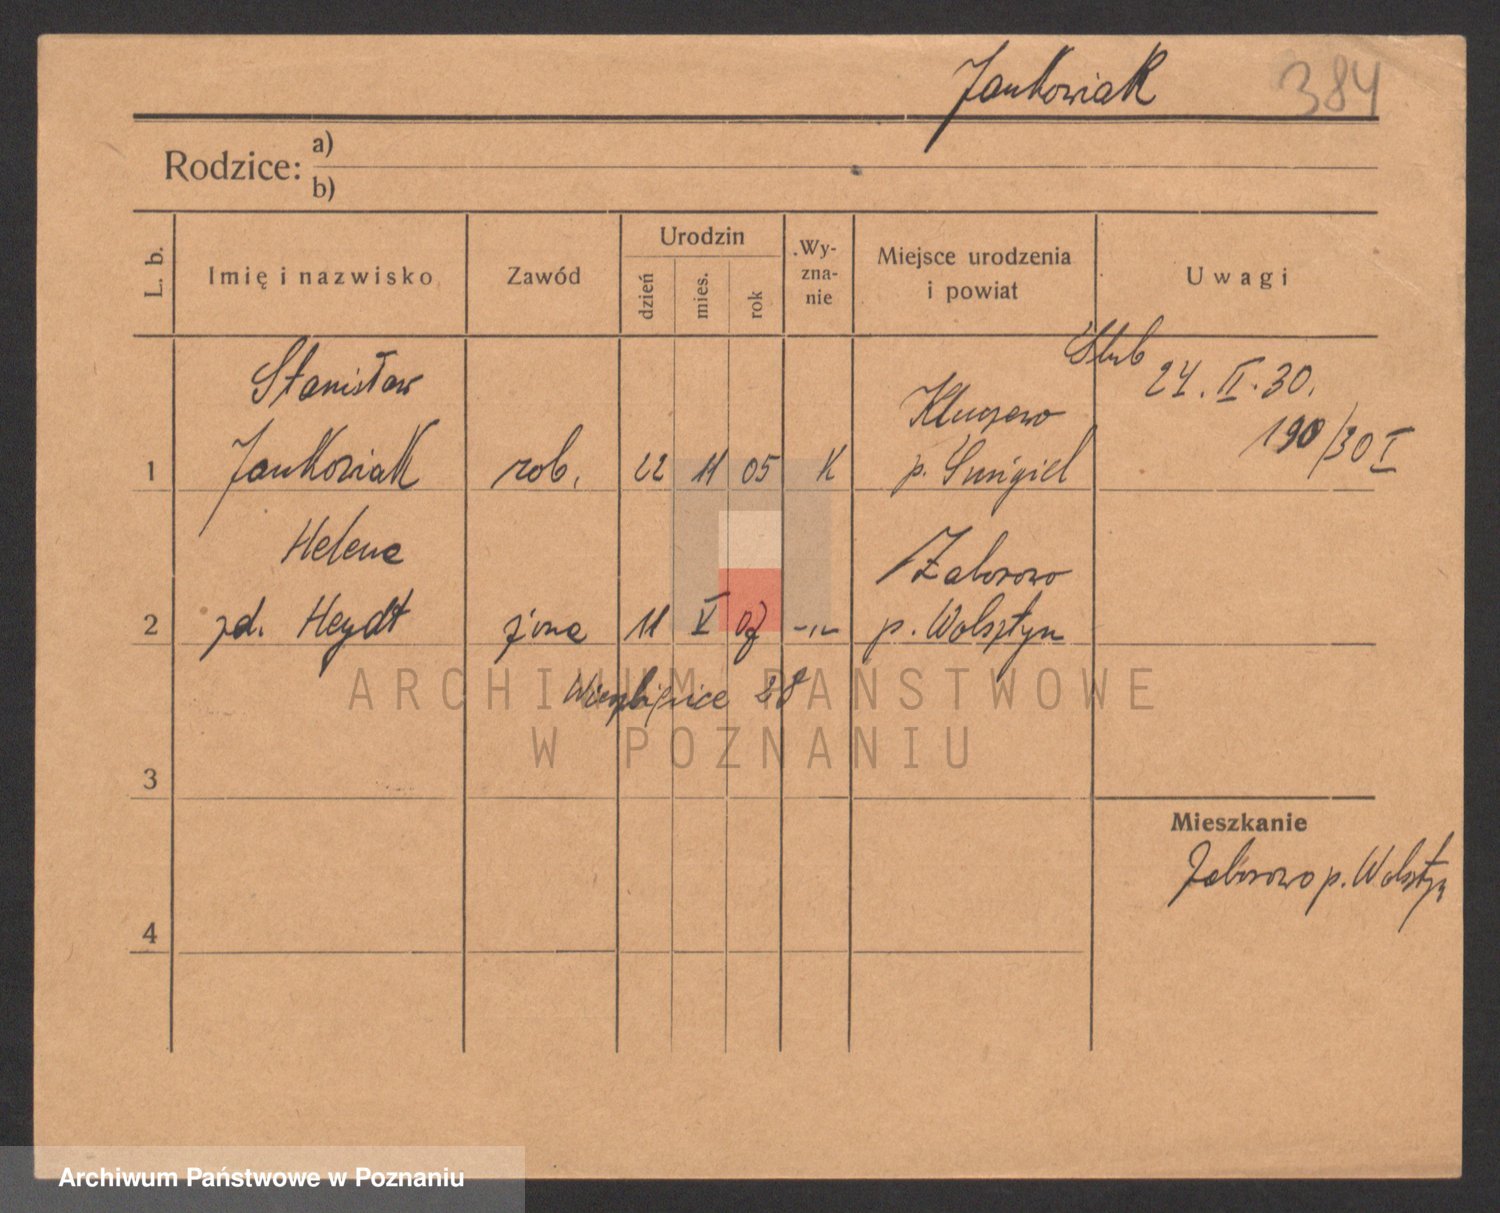 Jankowiak 384
Rodzice: a)
b)
L. b.
Imię i nazwisko
Zawód
Urodzin
dzień
mies.
rok
Wy-
zna-
nie
Miejsce urodzenia
i powiat
Uwagi
Stanisław
Ślub 24. II. 30.
Kluczewo
190/30 I
1 Jankowiak rob. 22 11 05 K p. Śmigiel
Helena Zaborowo
2 zd. Heydt żona 11 V 07 -"- p. Wolsztyn
Wierzbięcice 28
ARCHIWUM PAŃSTWOWE
W POZNANIU
3
Mieszkanie
Zaborowo p. Wolsztyn
4
Archiwum Państwowe w Poznaniu